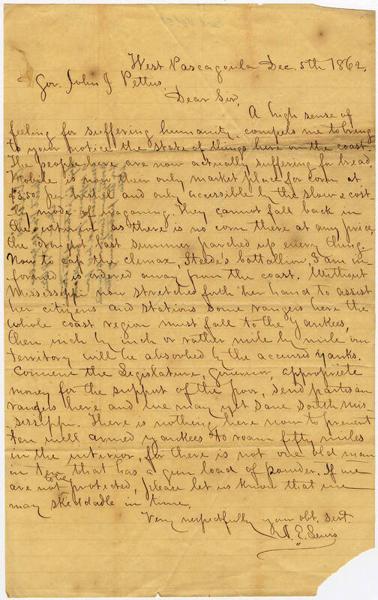 West Pascagoula Dec. 5th 1862
Gov. John J Pettus,
Dear Sir,
A high sense of
feeling for suffering humanity, compels me to bring
to your notice the state of things here on the coast.
The people here are now actually suffering for bread.
Mobile is now their only market place for corn at
per and only accessible by the slow & cost
mode of They cannot fall back in
the interior as there is no corn there at any price,
the last summer parched up every thing.
Now to cap the climax, Steede's battallion I am in
formed is ordered away from the coast. Without
Mississippi now stretches forth her hand to assist
her citizens and stations some rangers here the
whole coast region must fall to the Yankees,
then inch by inch or rather mile by mile our
territory will be absorbed by the accursed yanks.
Convene the Legislature, Governor, appropriate
money for the support of the poor, send partisan
rangers here and we may yet save South Mis
sissippi. There is nothing here now to prevent
ten well armed yankees to roam fifty miles
in the interior, for there is not one old man
in ten that has a gun load of powder. If we
are not to be protected, please let us know that we
may skedaddle in time.
Very respectfully your obt. Servt.
A. E. Lewis